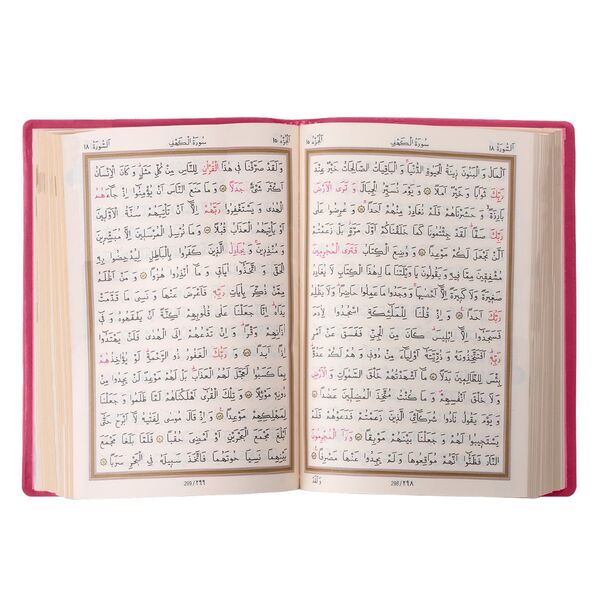 اَلسُّورَةُ ١٨ سُورَةُ الْكَهْفِ اَلْجُزْءُ ١٥
اَلْمَالُ وَ الْبَنُونَ زِينَةُ الْحَيٰوةِ الدُّنْيَا وَ الْبَاقِيَاتُ الصَّالِحَاتُ خَيْرٌ عِنْدَ
رَبِّكَ ثَوَابًا وَ خَيْرٌ اَمَلًا ۝ وَ يَوْمَ نُسَيِّرُ الْجِبَالَ وَ تَرَى الْاَرْضَ
بَارِزَةً وَ حَشَرْنَاهُمْ فَلَمْ نُغَادِرْ مِنْهُمْ اَحَدًا ۝ وَ عُرِضُوا عَلٰى
رَبِّكَ صَفًّا لَقَدْ جِئْتُمُونَا كَمَا خَلَقْنَاكُمْ اَوَّلَ مَرَّةٍ بَلْ زَعَمْتُمْ
اَلَّنْ نَجْعَلَ لَكُمْ مَوْعِدًا ۝ وَ وُضِعَ الْكِتَابُ فَتَرَى الْمُجْرِمِينَ
مُشْفِقِينَ مِمَّا فِيهِ وَ يَقُولُونَ يَا وَيْلَتَنَا مَا لِهٰذَا الْكِتَابِ لَا يُغَادِرُ
صَغِيرَةً وَ لَا كَبِيرَةً اِلَّا اَحْصٰيهَا وَ وَجَدُوا مَا عَمِلُوا حَاضِرًا وَ لَا يَظْلِمُ
رَبُّكَ اَحَدًا ۝ وَ اِذْ قُلْنَا لِلْمَلٰٓئِكَةِ اسْجُدُوا لِاٰدَمَ
فَسَجَدُوا اِلَّا اِبْلِيسَ كَانَ مِنَ الْجِنِّ فَفَسَقَ عَنْ اَمْرِ
رَبِّهِ اَفَتَتَّخِذُونَهُ وَ ذُرِّيَّتَهُ اَوْلِيَاءَ مِنْ دُونِى وَ هُمْ لَكُمْ عَدُوٌّ
بِئْسَ لِلظَّالِمِينَ بَدَلًا ۝ مَا اَشْهَدْتُهُمْ خَلْقَ السَّمٰوَاتِ وَ الْاَرْضِ
وَ لَا خَلْقَ اَنْفُسِهِمْ وَ مَا كُنْتُ مُتَّخِذَ الْمُضِلِّينَ عَضُدًا ۝
وَ يَوْمَ يَقُولُ نَادُوا شُرَكَائِىَ الَّذِينَ زَعَمْتُمْ فَدَعَوْهُمْ فَلَمْ
يَسْتَجِيبُوا لَهُمْ وَ جَعَلْنَا بَيْنَهُمْ مَوْبِقًا ۝ وَ رَاَ الْمُجْرِمُونَ
النَّارَ فَظَنُّوا اَنَّهُمْ مُوَاقِعُوهَا وَ لَمْ يَجِدُوا عَنْهَا مَصْرِفًا ۝
298/٢٩٨ وَ لَقَدْ
اَلْجُزْءُ ١٥ سُورَةُ الْكَهْفِ اَلسُّورَةُ ١٨
وَ لَقَدْ صَرَّفْنَا فِى هٰذَا الْقُرْاٰنِ لِلنَّاسِ مِنْ كُلِّ مَثَلٍ وَ كَانَ الْاِنْسَانُ
اَكْثَرَ شَىْءٍ جَدَلًا ۝ وَ مَا مَنَعَ النَّاسَ اَنْ يُؤْمِنُوا اِذْ جَاءَهُمُ
الْهُدٰى وَ يَسْتَغْفِرُوا رَبَّهُمْ اِلَّا اَنْ تَأْتِيَهُمْ سُنَّةُ الْاَوَّلِينَ
اَوْ يَأْتِيَهُمُ الْعَذَابُ قُبُلًا ۝ وَ مَا نُرْسِلُ الْمُرْسَلِينَ اِلَّا مُبَشِّرِينَ
وَ مُنْذِرِينَ وَ يُجَادِلُ الَّذِينَ كَفَرُوا بِالْبَاطِلِ لِيُدْحِضُوا بِهِ
الْحَقَّ وَ اتَّخَذُوا اٰيَاتِى وَ مَا اُنْذِرُوا هُزُوًا ۝ وَ مَنْ اَظْلَمُ
مِمَّنْ ذُكِّرَ بِاٰيَاتِ رَبِّهِ فَاَعْرَضَ عَنْهَا وَ نَسِىَ مَا قَدَّمَتْ
يَدَاهُ اِنَّا جَعَلْنَا عَلٰى قُلُوبِهِمْ اَكِنَّةً اَنْ يَفْقَهُوهُ وَ فِى
اٰذَانِهِمْ وَقْرًا وَ اِنْ تَدْعُهُمْ اِلَى الْهُدٰى فَلَنْ يَهْتَدُوا
اِذًا اَبَدًا ۝ وَ رَبُّكَ الْغَفُورُ ذُو الرَّحْمَةِ لَوْ يُؤَاخِذُهُمْ
بِمَا كَسَبُوا لَعَجَّلَ لَهُمُ الْعَذَابَ بَلْ لَهُمْ مَوْعِدٌ لَنْ يَجِدُوا مِنْ
دُونِهِ مَوْئِلًا ۝ وَ تِلْكَ الْقُرٰى اَهْلَكْنَاهُمْ لَمَّا ظَلَمُوا وَ جَعَلْنَا
لِمَهْلِكِهِمْ مَوْعِدًا ۝ وَ اِذْ قَالَ مُوسٰى لِفَتٰيهُ لَا اَبْرَحُ حَتّٰى
اَبْلُغَ مَجْمَعَ الْبَحْرَيْنِ اَوْ اَمْضِىَ حُقُبًا ۝ فَلَمَّا بَلَغَا مَجْمَعَ
بَيْنِهِمَا نَسِيَا حُوتَهُمَا فَاتَّخَذَ سَبِيلَهُ فِى الْبَحْرِ سَرَبًا ۝
299/٢٩٩